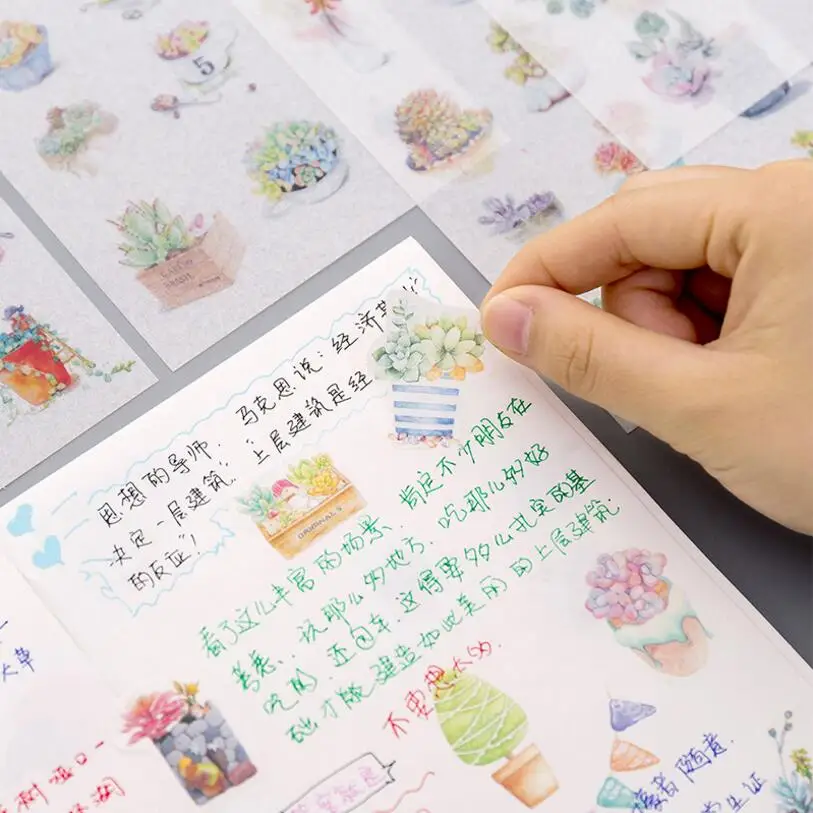 5
思想的导师. 马克思说: 经济基
决定一层建筑. "上层建筑是经
的反证!
看了这么丰富的场景、肯定不少朋友在
考虑、玩那么多地方、吃那么多好
吃的、还包车、这得要多么扎实的基
础才能建造如此美丽的上层建筑
ORIGINALS
不要想太多.
大草
树垭口一
随意.
生证